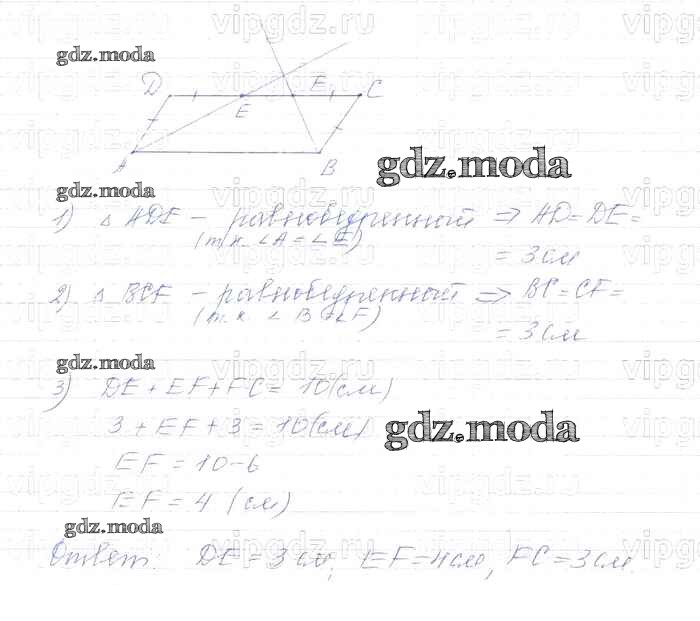 vipgdz.ru vipgdz.ru vipgdz.ru
gdz.moda
D E F C
A B
gdz.moda
gdz.moda
1) △ ADE – равнобедренный ⇒ AD = DE =
(т.к. ∠A = ∠E)
= 3 см
2) △ BCF – равнобедренный ⇒ BC = CF =
(т.к. ∠B = ∠F)
= 3 см
gdz.moda
3) DE + EF + FC = 10 (см)
3 + EF + 3 = 10 (см)
gdz.moda
EF = 10 – 6
EF = 4 (см)
gdz.moda
Ответ: DE = 3 см, EF = 4 см, FC = 3 см.